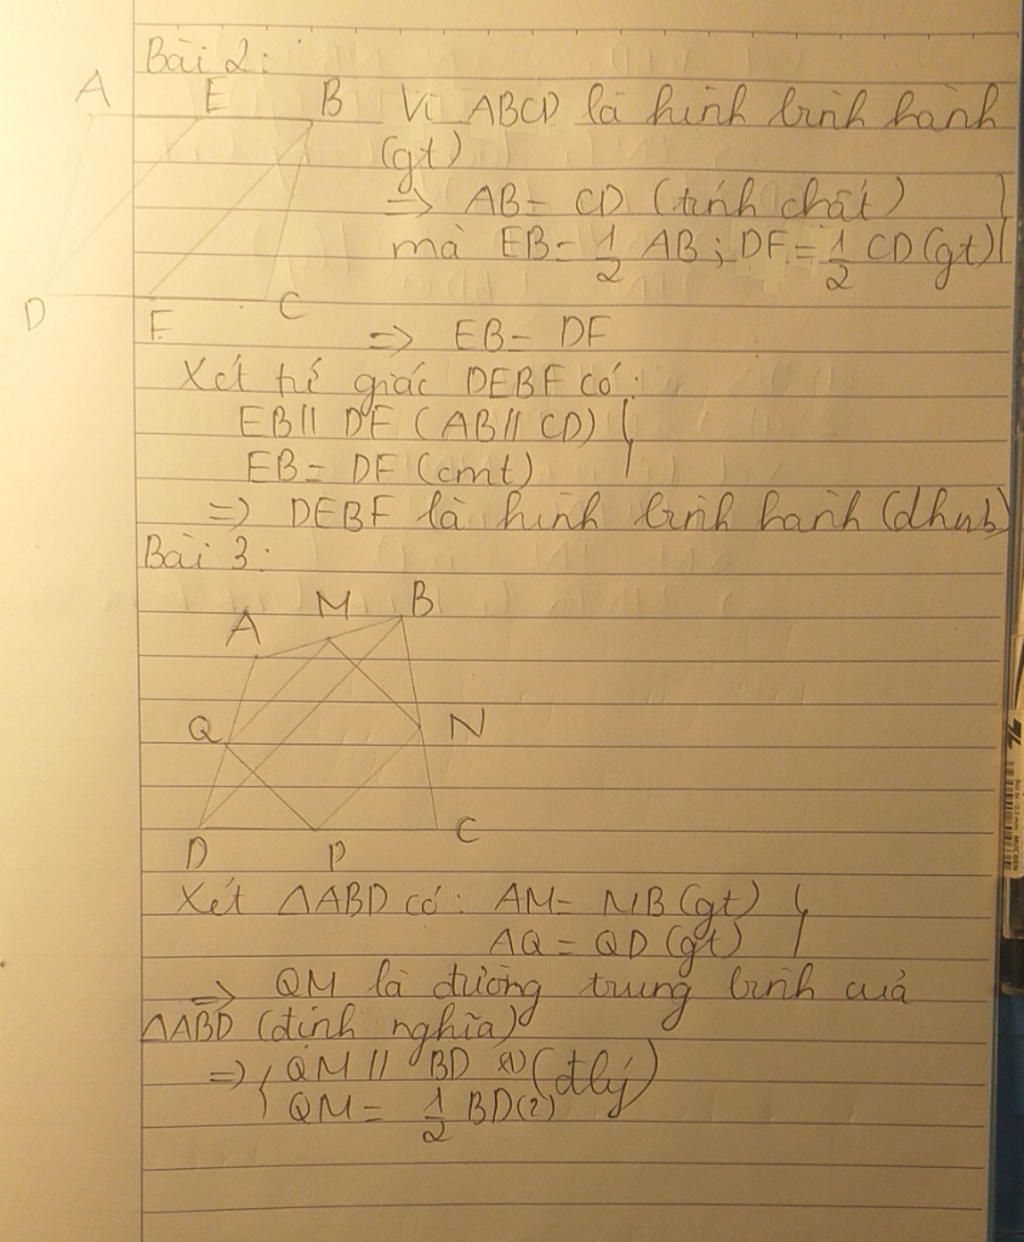 Bài 2:
A E B Vì ABCD là hình bình hành
(gt)
=> AB = CD (tính chất)
mà EB = 1/2 AB ; DF = 1/2 CD (gt)
D F C
=> EB = DF
Xét tứ giác DEBF có:
EB // DF (AB // CD)
EB = DF (cmt)
=> DEBF là hình bình hành (dhnb)
Bài 3:
M B
A
Q N
D P C
Xét △ABD có: AM = MB (gt)
AQ = QD (gt)
=> QM là đường trung bình của
△ABD (định nghĩa)
=> { QM // BD (1) (đlý)
QM = 1/2 BD (2)